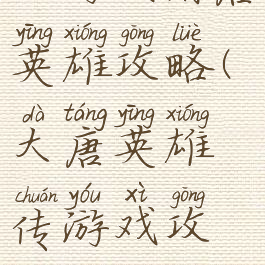 yīng xióng gōng lüè
英雄攻略(
dà táng yīng xióng
大唐英雄
chuán yóu xì gōng
传游戏攻